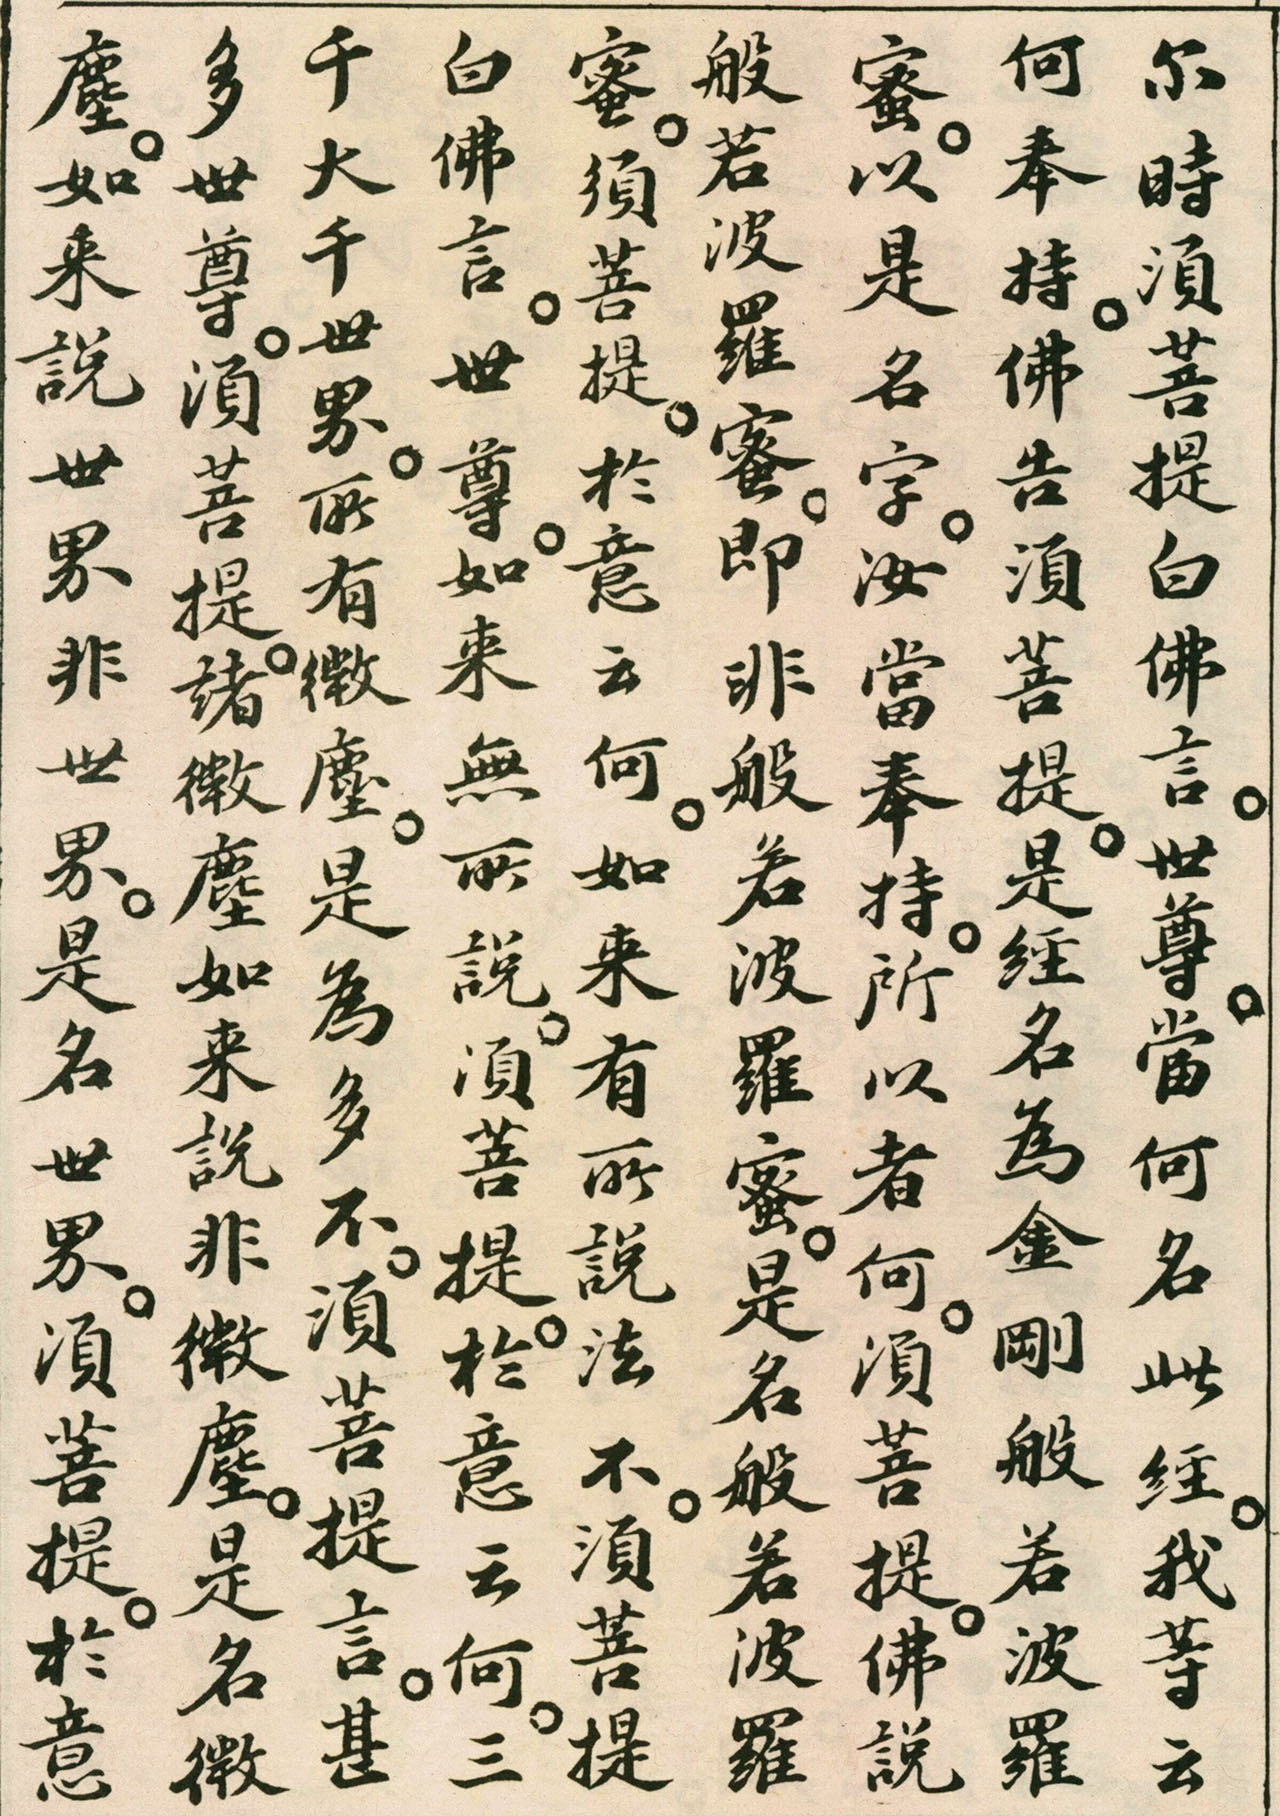 尓時須菩提白佛言。世尊。當何名此經。我等云
何奉持。佛告須菩提。是經名為金剛般若波羅
蜜。以是名字。汝當奉持。所以者何。須菩提。佛說
般若波羅蜜。即非般若波羅蜜。是名般若波羅
蜜。須菩提。於意云何。如来有所說法不。須菩提
白佛言。世尊。如来無所說。須菩提。於意云何。三
千大千世界。所有微塵。是為多不。須菩提言。甚
多世尊。須菩提。諸微塵如来說非微塵。是名微
塵。如来說世界非世界。是名世界。須菩提。於意